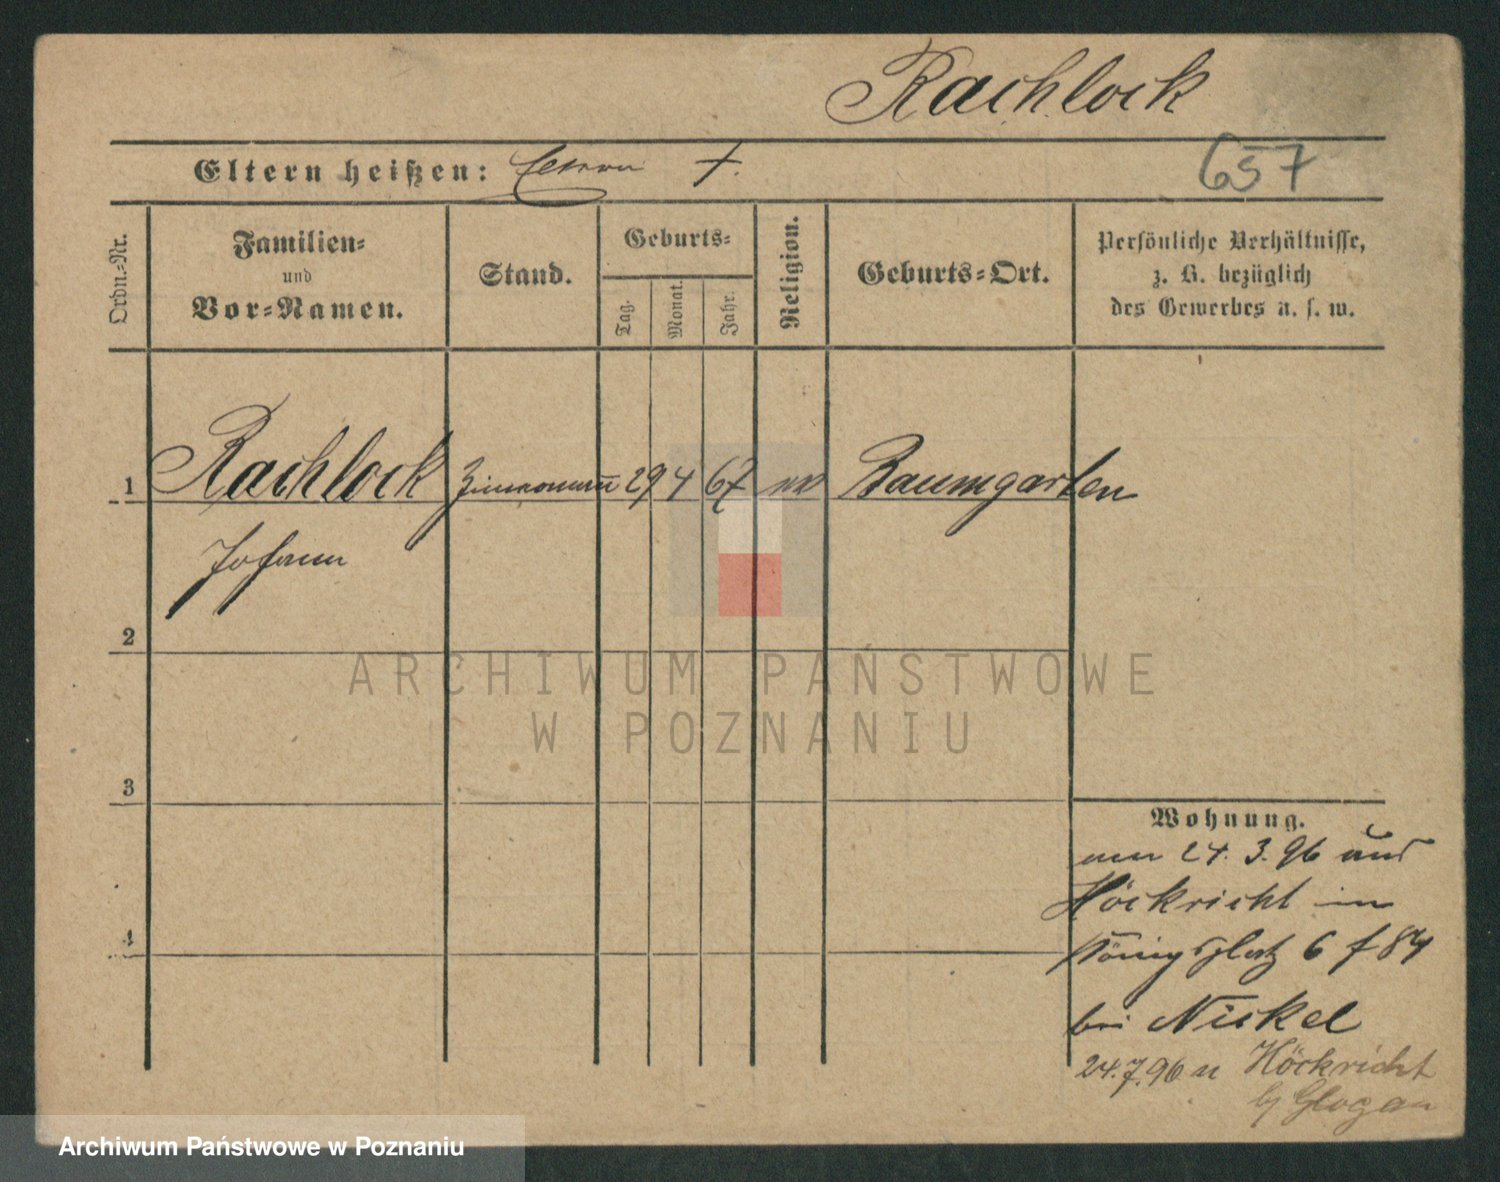 Rachlock
Eltern heißen: †.
657
Ordn.-Nr.
Familien-
und
Vor-Namen.
Stand.
Geburts-
Tag.
Monat.
Jahr.
Religion.
Geburts-Ort.
Persönliche Verhältnisse,
z. B. bezüglich
des Gewerbes u. s. w.
1 Rachlock 29 4 67 Baumgarten
Johann
2
3
4
Wohnung.
24.3.96 aus
Höckricht in
Königsplatz 6
bei Nickel
24.7.96 n Höckricht
b/ Glogau
ARCHIWUM PAŃSTWOWE
W POZNANIU
Archiwum Państwowe w Poznaniu